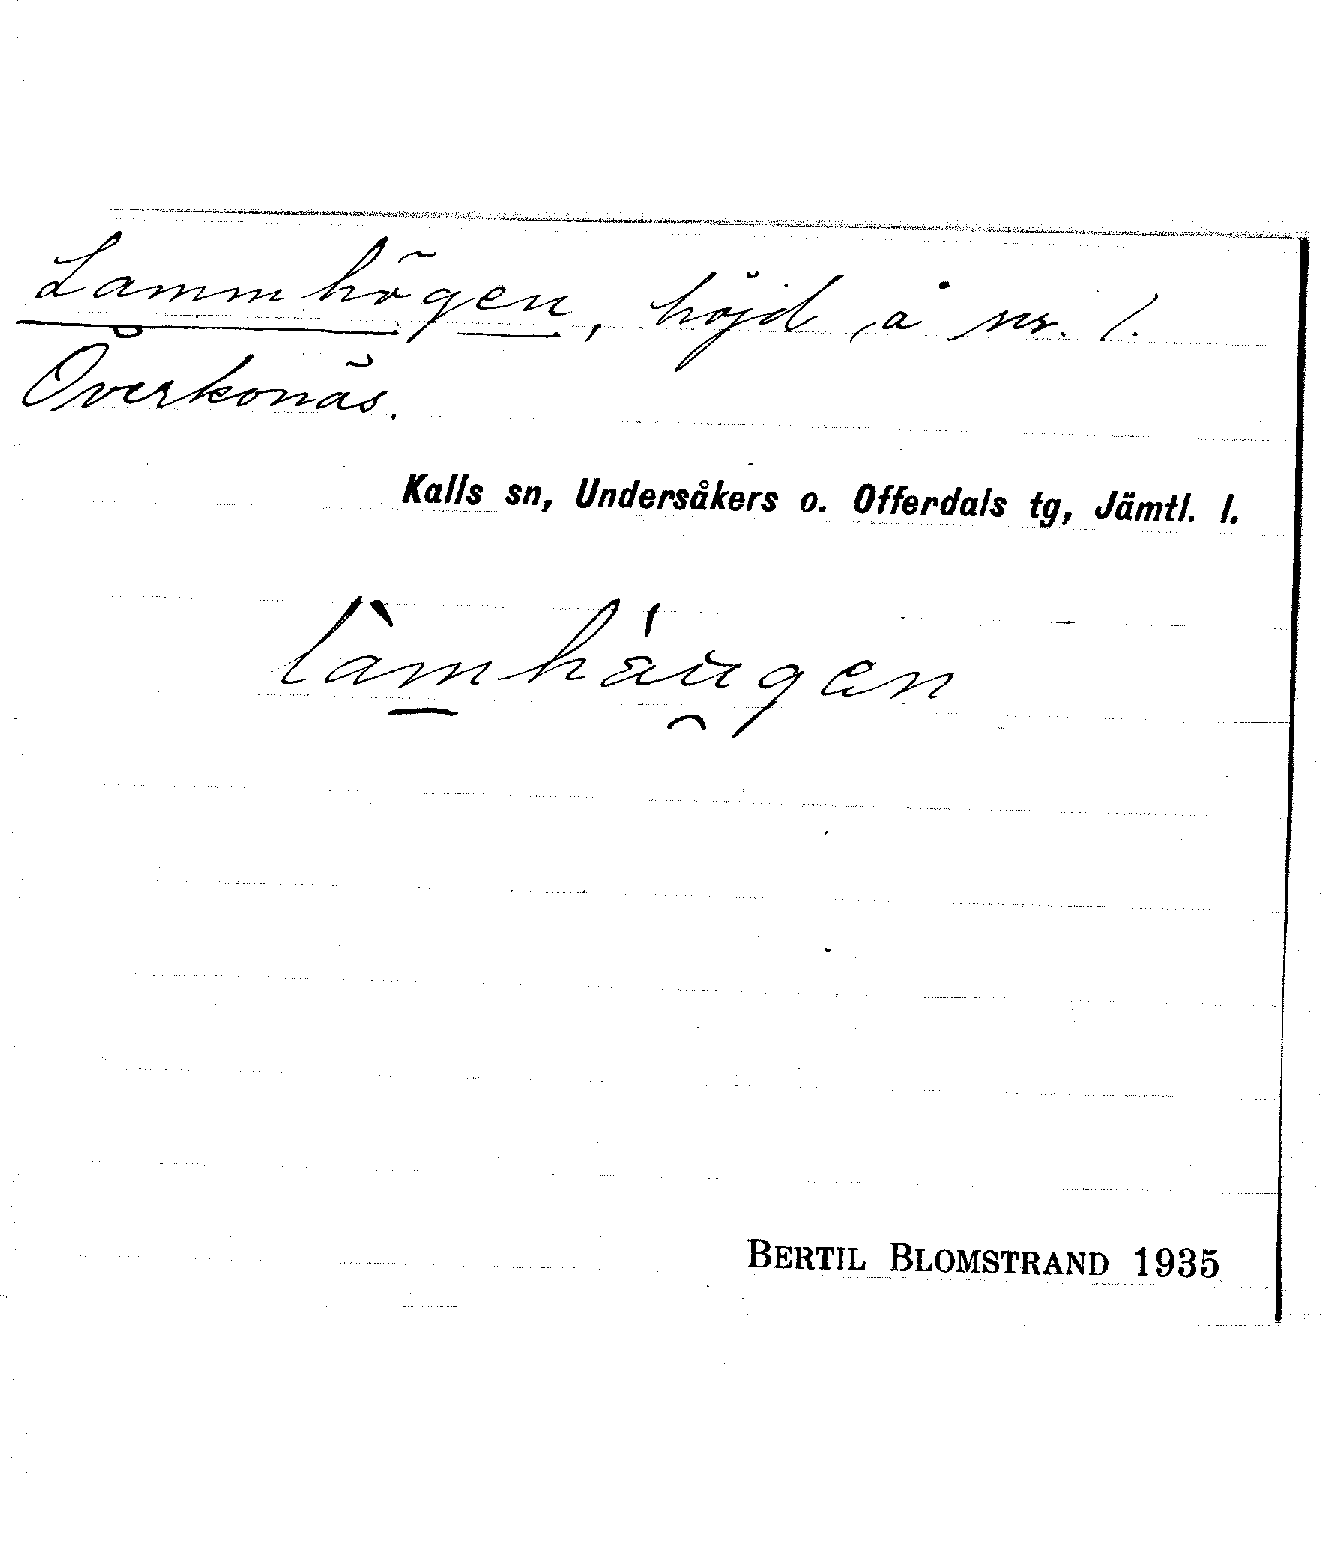 Lammhögen, höjd å nr. 1.
Överkonäs.
Kalls sn, Undersåkers o. Offerdals tg, Jämtl. l.
làm̲háu̯gen
BERTIL BLOMSTRAND 1935